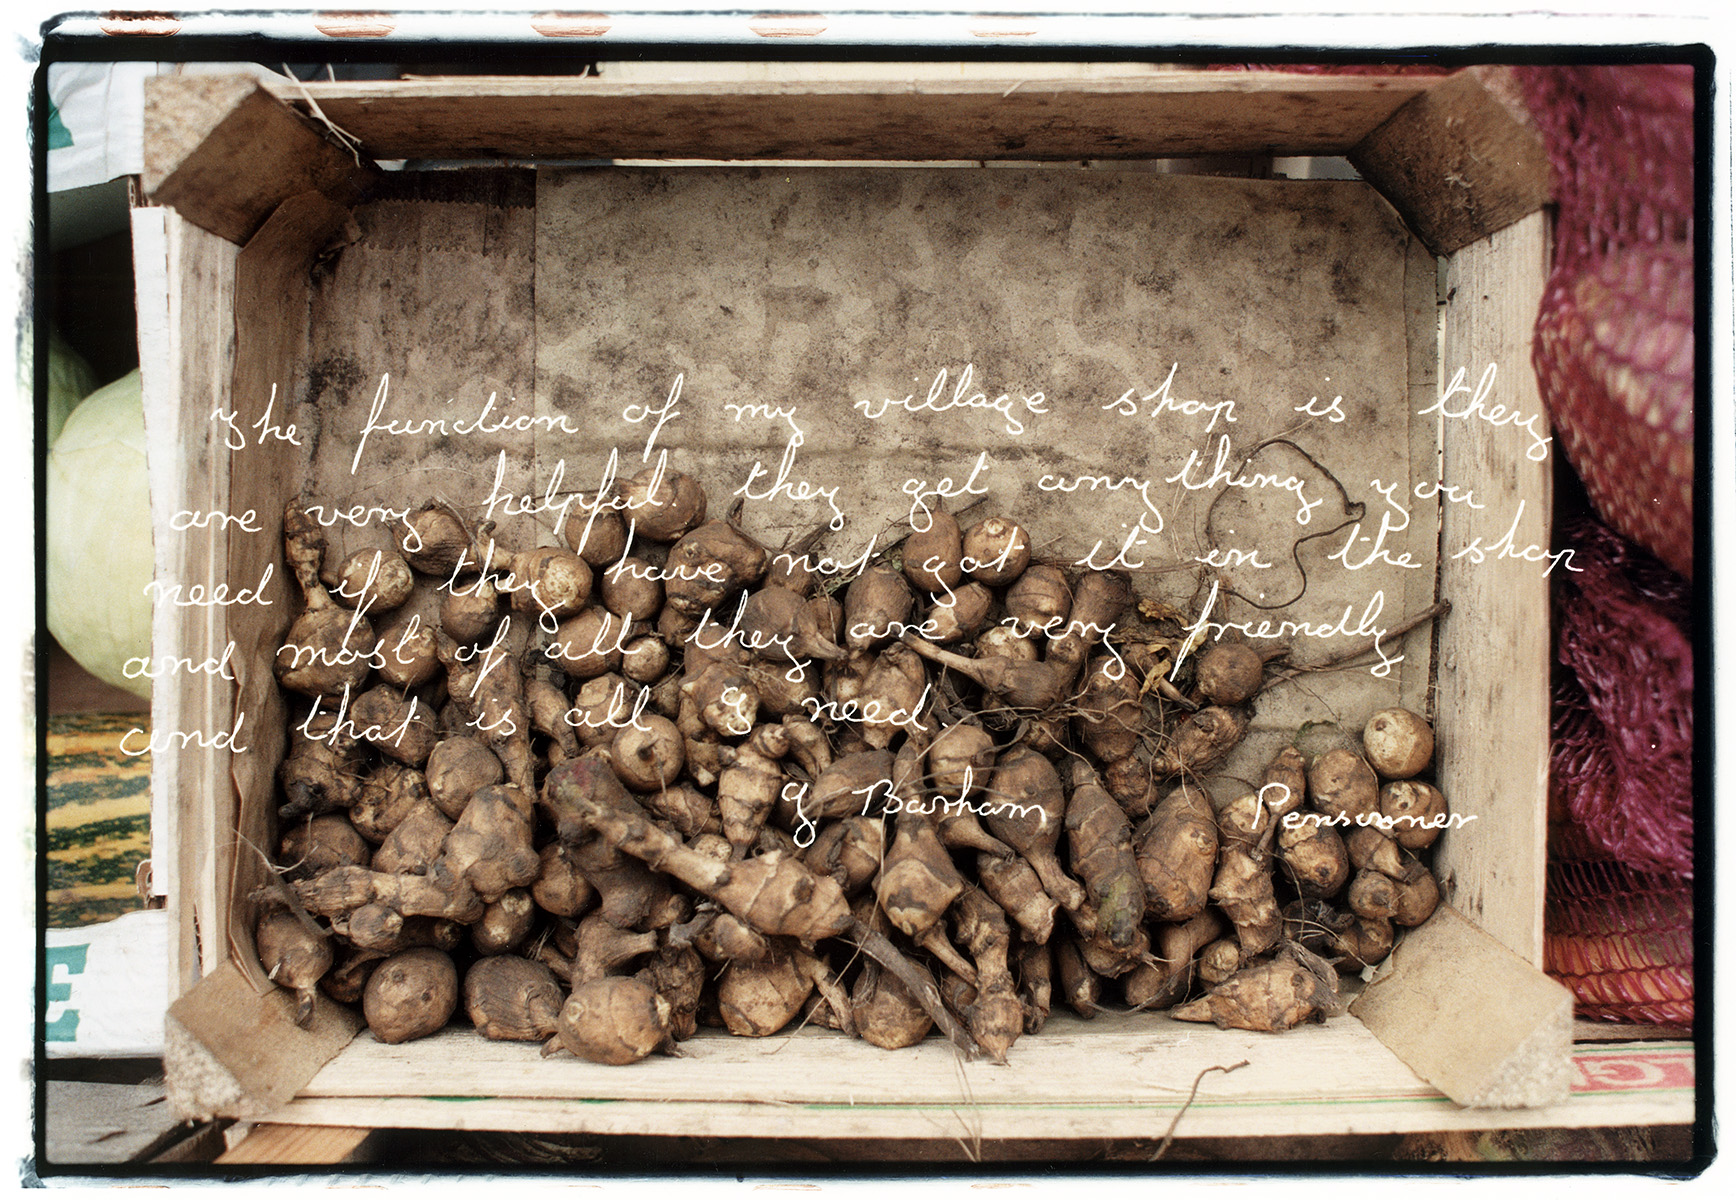 The function of my village shop is they
are very helpful. they get any thing you
need if they have not got it in the shop
and most of all they are very friendly
and that is all I need.
G. Barham Pensionner
E